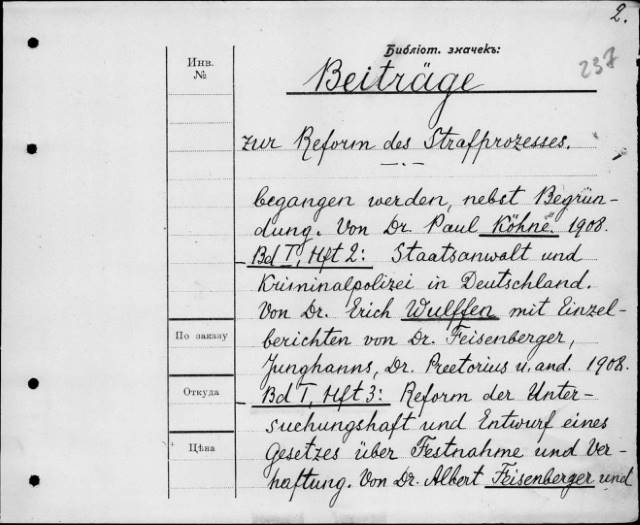 2.
Библіот. значекъ:
237
Инв.
№
Beiträge
zur Reform des Strafprozesses.
begangen werden, nebst Begrün-
dung. Von Dr. Paul Köhne. 1908.
Bd I, Hft 2: Staatsanwalt und
Kriminalpolizei in Deutschland.
Von Dr. Erich Wulffen mit Einzel-
berichten von Dr. Feisenberger,
По заказу
Junghanns, Dr. Preetorius u. and. 1908.
Откуда
Bd I, Hft 3: Reform der Unter-
suchungshaft und Entwurf eines
Цѣна
Gesetzes über Festnahme und Ver-
haftung. Von Dr. Albert Feisenberger und